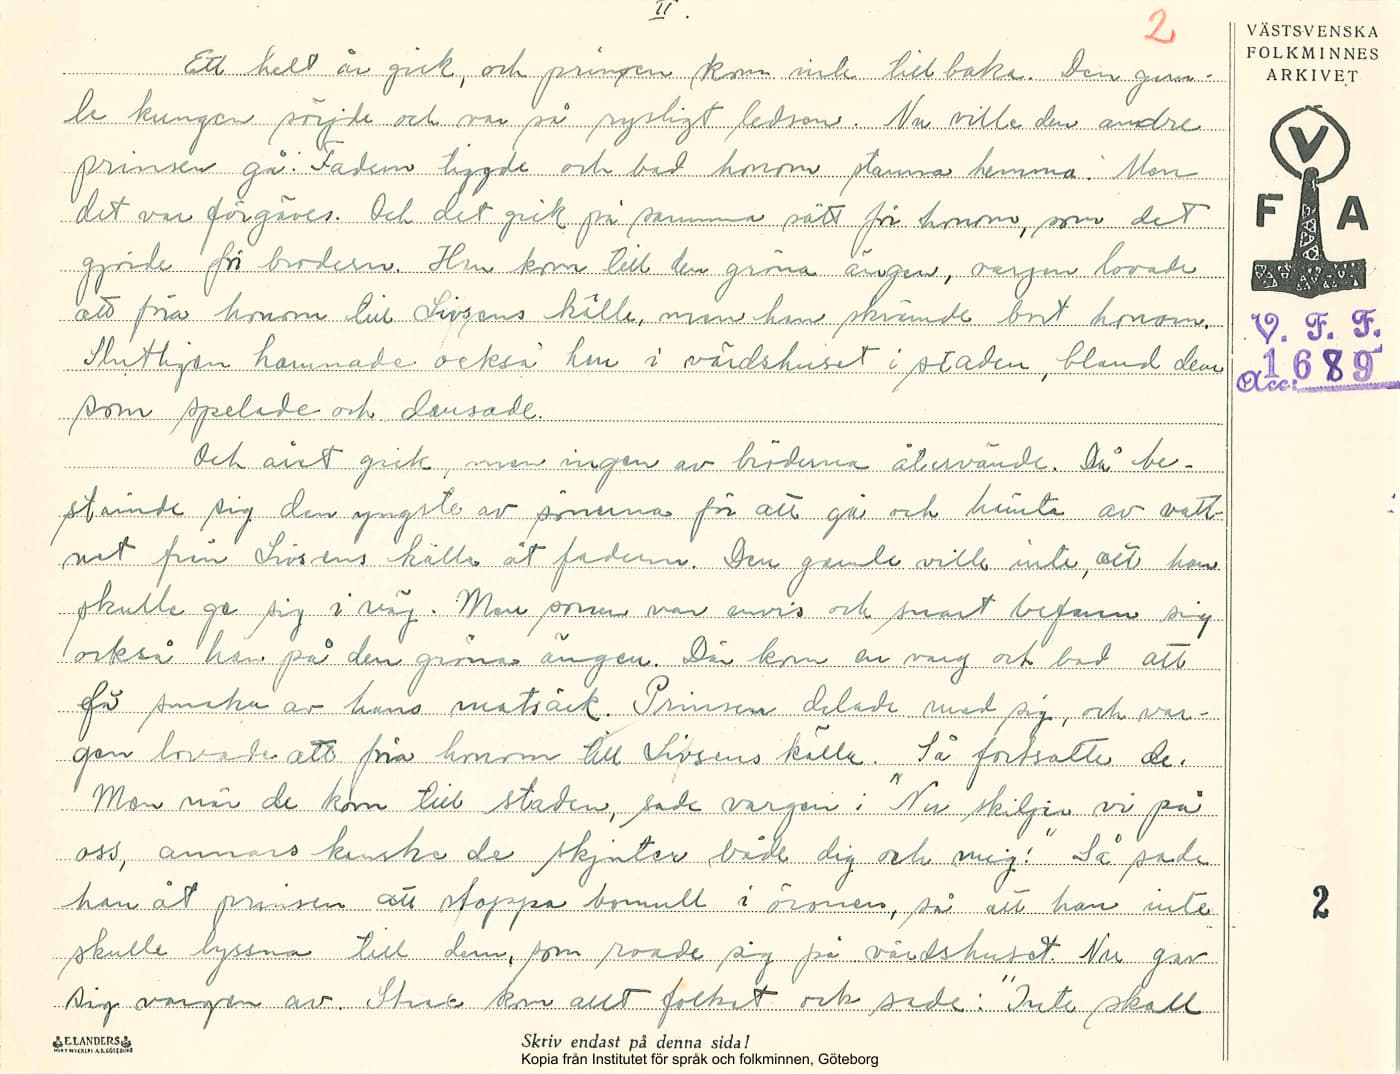 II.
2
Ett helt år gick, och prinsen kom inte tillbaka. Den gam-
le kungen sörjde och var så rysligt ledsen. Nu ville den andre
prinsen gå. Fadern tiggde och bad honom stanna hemma. Men
det var förgäves. Och det gick på samma sätt för honom, som det
gjorde för brodern. Han kom till den gröna ängen, vargen lovade
att föra honom till Livsens källa, men han skrämde bort honom.
Slutligen hamnade också han i värdshuset i staden, bland dem
som spelade och dansade.
Och året gick, men ingen av bröderna återvände. Då be-
stämde sig den yngste av sönerna för att gå och hämta av vatt-
net från Livsens källa åt fadern. Den gamle ville inte, att han
skulle ge sig i väg. Men sonen var envis och snart befann sig
också han på den gröna ängen. Där kom en varg och bad att
få smaka av hans matsäck. Prinsen delade med sig, och var-
gen lovade att föra honom till Livsens källa. Så fortsatte de.
Men när de kom till staden, sade vargen: "Nu skiljas vi på
oss, annars kanske de skjuter både dig och mig!" Så sade
han åt prinsen att stoppa bomull i öronen, så att han inte
skulle lyssna till dem, som roade sig på värdshuset. Nu gav
sig vargen av. Strax kom allt folket och sade: "Inte skall
VÄSTSVENSKA
FOLKMINNES
ARKIVET
V
F A
V. F. F.
Acc. 1689
2
E. LANDERS
Skriv endast på denna sida!
Kopia från Institutet för språk och folkminnen, Göteborg